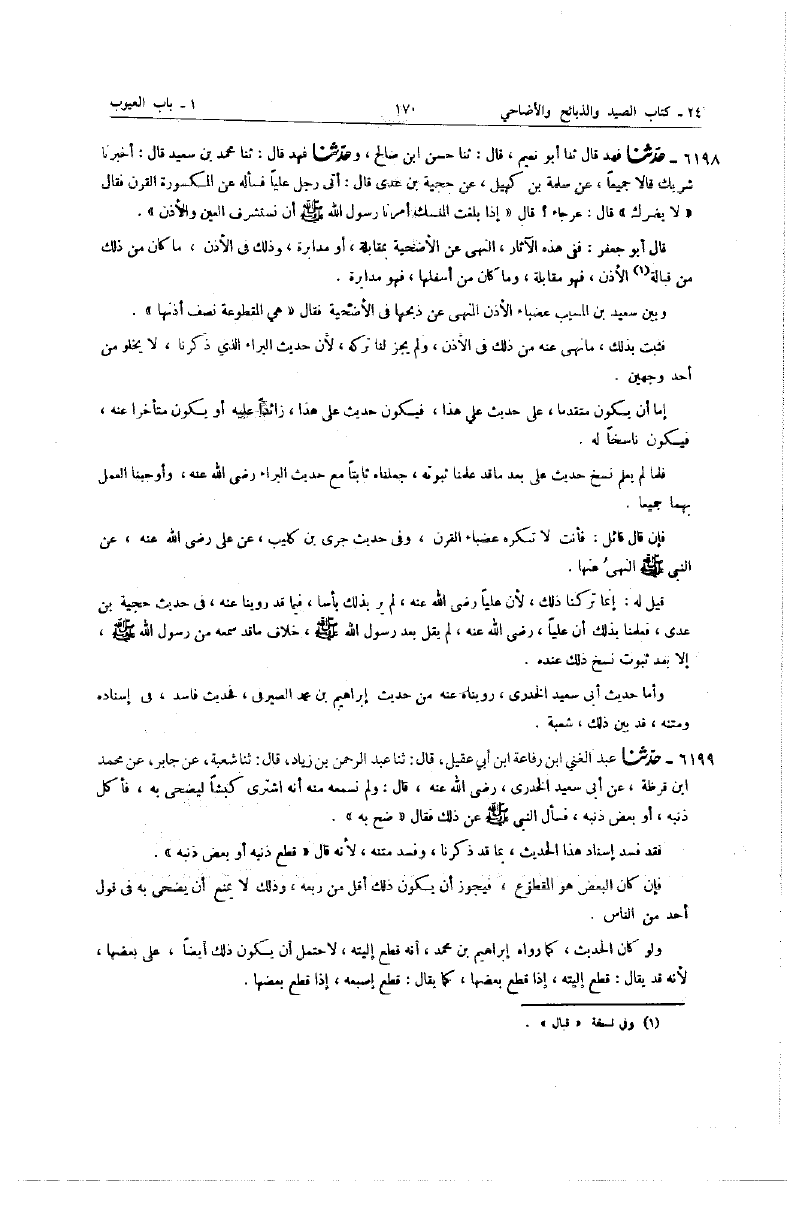 ٢٤ - كتاب الصيد والذبائح والأضاحي ١٧٠ ١ - باب العيوب
٦١٩٨ - حدثنا فهد قال ثنا أبو نعيم ، قال : ثنا حسن ابن صالح ، وحدثنا فهد قال : ثنا محمد بن سعيد قال : أخبرنا
شريك قالا جميعاً ، عن سلمة بن كهيل ، عن حجية بن عدى قال : أتى رجل علياً فسأله عن المكسورة القرن فقال
« لا يضرك » قال : عرجاء ؟ قال « إذا بلغت المنسك أمرنا رسول الله ﷺ أن نستشرف العين والأذن » .
قال أبو جعفر : ففى هذه الآثار ، النهى عن الأضحية بمقابلة ، أو مدابرة ، وذلك فى الأذن ، ما كان من ذلك
من قبالة(١) الأذن ، فهو مقابلة ، وما كان من أسفلها ، فهو مدابرة .
وبين سعيد بن المسيب عضباء الأذن النهى عن ذبحها فى الأضحية فقال « هي المقطوعة نصف أذنها » .
فثبت بذلك ، مانهى عنه من ذلك فى الأذن ، ولم يجز لنا تركه ، لأن حديث البراء الذي ذكرنا ، لا يخلو من
أحد وجهين .
إما أن يكون متقدما ، على حديث علي هذا ، فيكون حديث على هذا ، زائداً عليه أو يكون متأخرا عنه ،
فيكون ناسخاً له .
فلما لم يعلم نسخ حديث على بعد ماقد علمنا ثبوته ، جعلناه ثابتاً مع حديث البراء رضى الله عنه ، وأوجبنا العمل
بهما جميعا .
فإن قال قائل : فأنت لا تكره عضباء القرن ، وفى حديث جرى بن كليب ، عن على رضى الله عنه ، عن
النبى ﷺ النهىُ عنها .
قيل له : إنما تركنا ذلك ، لأن علياً رضى الله عنه ، لم ير بذلك بأسا ، فيما قد روينا عنه ، فى حديث حجية بن
عدى ، فعلمنا بذلك أن علياً ، رضى الله عنه ، لم يقل بعد رسول الله ﷺ ، خلاف ماقد سمعه من رسول الله ﷺ ،
إلا بعد ثبوت نسخ ذلك عنده .
وأما حديث أبى سعيد الخدرى ، رويناه عنه من حديث إبراهيم بن محمد الصيرفى ، فحديث فاسد ، فى إسناده
ومتنه ، قد بين ذلك ، شعبة .
٦١٩٩ - حدثنا عبد الغني ابن رفاعة ابن أبي عقيل، قال: ثنا عبد الرحمن بن زياد، قال: ثنا شعبة، عن جابر، عن محمد
ابن قرظة ، عن أبى سعيد الخدرى ، رضى الله عنه ، قال : ولم نسمعه منه أنه اشترى كبشاً ليضحى به ، فأكل
ذنبه ، أو بعض ذنبه ، فسأل النبى ﷺ عن ذلك فقال « ضح به » .
فقد فسد إسناد هذا الحديث ، بما قد ذكرنا ، وفسد متنه ، لأنه قال « قطع ذنبه أو بعض ذنبه » .
فإن كان البعض هو المقطوع ، فيجوز أن يكون ذلك أقل من ربعه ، وذلك لا يمنع أن يضحى به فى قول
أحد من الناس .
ولو كان الحديث ، كما رواه إبراهيم بن محمد ، أنه قطع إليته ، لاحتمل أن يكون ذلك أيضاً ، على بعضها ،
لأنه قد يقال : قطع إليته ، إذا قطع بعضها ، كما يقال : قطع إصبعه ، إذا قطع بعضها .
(١) وفى نسخة « قبال » .